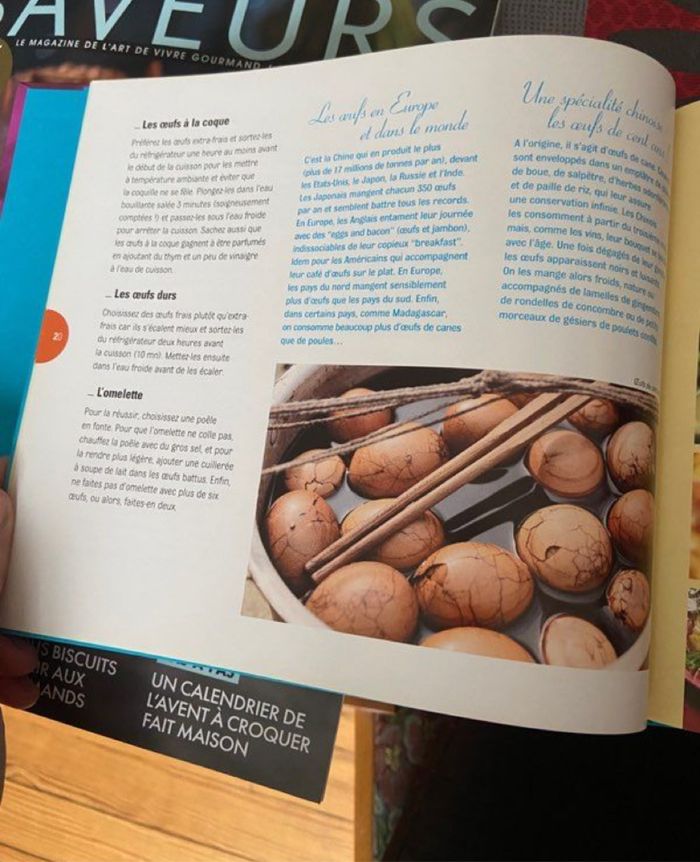 SAVEURS
LE MAGAZINE DE L'ART DE VIVRE GOURMAND
... Les œufs à la coque
Préférez les œufs extra-frais et sortez-les
du réfrigérateur une heure au moins avant
le début de la cuisson pour les mettre
à température ambiante et éviter que
la coquille ne se fêle. Plongez-les dans l'eau
bouillante salée 3 minutes (soigneusement
comptées !) et passez-les sous l'eau froide
pour arrêter la cuisson. Sachez aussi que
les œufs à la coque gagnent à être parfumés
en ajoutant du thym et un peu de vinaigre
à l'eau de cuisson.
... Les œufs durs
Choisissez des œufs frais plutôt qu'extra-
frais car ils s'écalent mieux et sortez-les
du réfrigérateur deux heures avant
la cuisson (10 mn). Mettez-les ensuite
dans l'eau froide avant de les écaler.
... L'omelette
Pour la réussir, choisissez une poêle
en fonte. Pour que l'omelette ne colle pas,
chauffez la poêle avec du gros sel, et pour
la rendre plus légère, ajouter une cuillerée
à soupe de lait dans les œufs battus. Enfin,
ne faites pas d'omelette avec plus de six
œufs, ou alors, faites-en deux.
20
Les œufs en Europe
et dans le monde
C'est la Chine qui en produit le plus
(plus de 17 millions de tonnes par an), devant
les Etats-Unis, le Japon, la Russie et l'Inde.
Les Japonais mangent chacun 350 œufs
par an et semblent battre tous les records.
En Europe, les Anglais entament leur journée
avec des "eggs and bacon" (œufs et jambon),
indissociables de leur copieux "breakfast".
Idem pour les Américains qui accompagnent
leur café d'œufs sur le plat. En Europe,
les pays du nord mangent sensiblement
plus d'œufs que les pays du sud. Enfin,
dans certains pays, comme Madagascar,
on consomme beaucoup plus d'œufs de canes
que de poules...
Une spécialité chinoise
les œufs de cent ans
A l'origine, il s'agit d'œufs de cane. Ils
sont enveloppés dans un emplâtre
de boue, de salpêtre, d'herbes
et de paille de riz, qui leur assure
une conservation infinie. Les Chinois
les consomment à partir du troisième
mais, comme les vins, leur bouquet se
avec l'âge. Une fois dégagés de leur
les œufs apparaissent noirs et luisants.
On les mange alors froids, nature ou
accompagnés de lamelles de gingembre
de rondelles de concombre ou de petits
morceaux de gésiers de poulets confits.
Œufs de
S BISCUITS
R AUX
ANDS
UN CALENDRIER DE
L'AVENT À CROQUER
FAIT MAISON